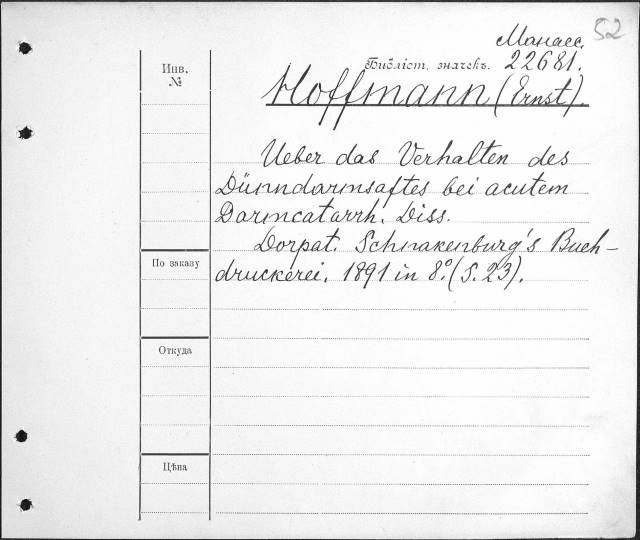 52
Манасс.
Инв.
№
Библіот. значекъ. 22681.
Hoffmann (Ernst).
Ueber das Verhalten des
Dünndarmsaftes bei acutem
Darmcatarrh. Diss.
Dorpat. Schnakenburg's Buch-
druckerei. 1891 in 8º. (S. 23).
По заказу
Откуда
Цѣна